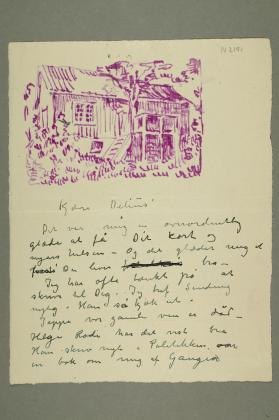 N 2191
Kjære Delius!
Det var mig en overordentlig
glæde at få Dit kort og
nyers hilsen – Og det glæder mig at
Du lever bra –
Jeg har ofte tænkt på at
skrive til Dig – Jeg traf Sinding
nylig – Han så gåk ut –
Jappe vor gamle ven er død –
Helge Rode har det visst bra
Han skrev nylig i Politikken om
en bok om mig af Gauguin